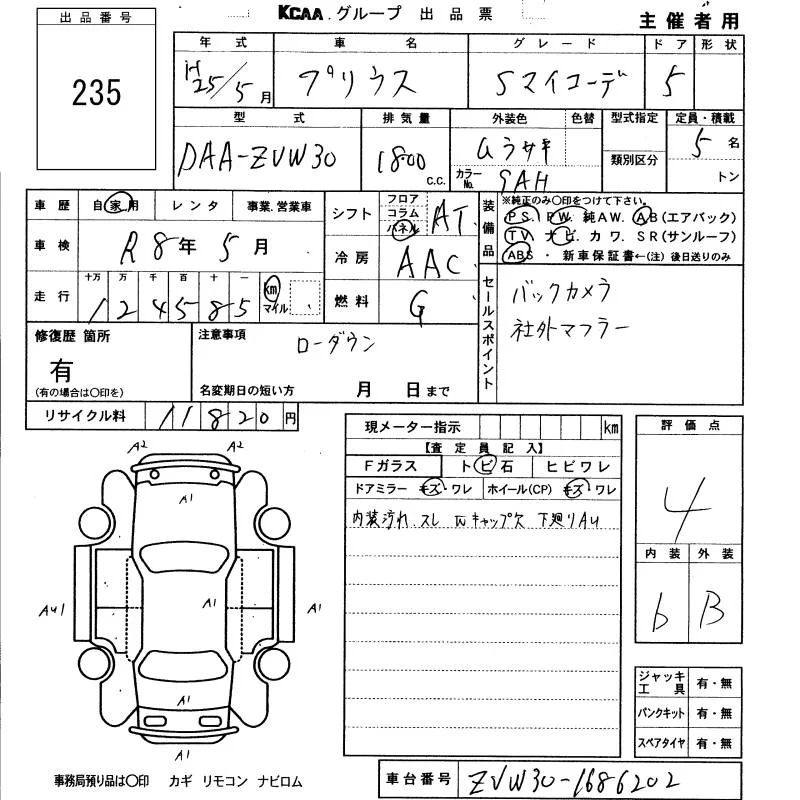 KCAA.グループ 出品票
主催者用
出品番号
235
年式 車名 グレード ドア 形状
H25/5月 プリウス Sマイコーデ 5
型式 排気量 外装色 色替 型式指定 定員・積載
DAA-ZVW30 1800 C.C. ムラサキ 類別区分 5名
カラーNo. 9AH トン
車歴 自家用 レンタ 事業.営業車
車検 R8年5月
走行 十万 万 千 百 十 一
124585 km マイル
シフト フロア コラム パネル AT
冷房 AAC
燃料 G
装備品
※純正のみ〇印をつけて下さい。
PS. PW. 純AW. AB(エアバック)
TV. ナビ. カワ. SR(サンルーフ)
ABS ・ 新車保証書←(注) 後日送りのみ
セールスポイント
バックカメラ
社外マフラー
修復歴 箇所
有
(有の場合は〇印を)
注意事項
ローダウン
名変期日の短い方 月 日まで
リサイクル料 11820円
現メーター指示 km
【査定員記入】
Fガラス トビ石 ヒビワレ
ドアミラー キズ・ワレ ホイール(CP) キズ・ワレ
内装汚れ スレ Wキャップ欠 下廻りAU
評価点
4
内装 外装
6 B
A2 A2
A1
AU1 A1 A1
A1
A1
ジャッキ工具 有・無
パンクキット 有・無
スペアタイヤ 有・無
事務局預り品は〇印 カギ リモコン ナビロム
車台番号 ZVW30-1686202